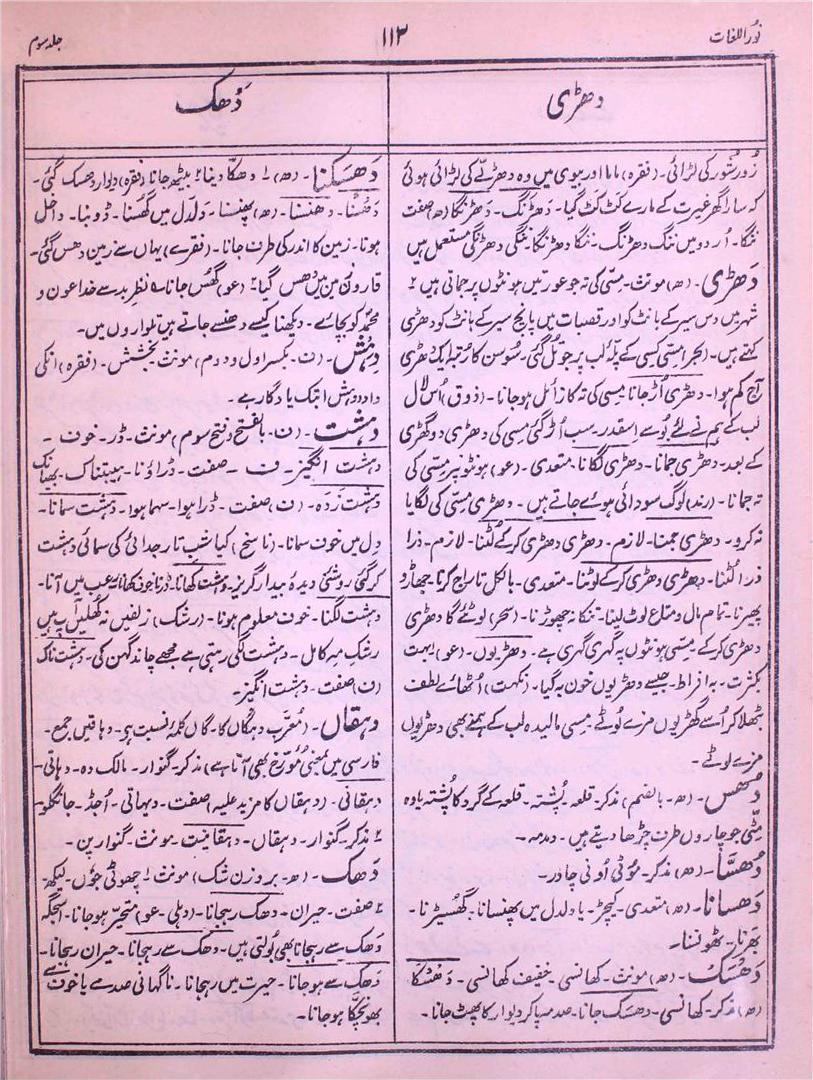 نُور اللغات
۱۱۳
جلد سوم
دھڑی
دَھک
زور شور کی لڑائی۔ (فقرہ) ماما اور بیوی میں وہ دھڑلّے کی لڑائی ہوئی
کہ سارا گھر غیرت کے مارے کٹ کٹ گیا۔ دَھڑنگ۔ دَھڑنگا (ھ) صفت
ننگا۔ اُردو میں ننگ دھڑنگ۔ ننگا دھڑنگا۔ ننگی دھڑنگی مستعمل ہیں
دَھڑی۔ (ھ) مونث۔ مِسّی کی تہ جو عورتیں ہونٹوں پر جماتی ہیں ۲
شہر میں دس سیر کے بانٹ کو اور قصبات میں پانچ سیر کے بانٹ کو دھڑی
کہتے ہیں۔ (بحر) مِسّی کسی کے پلّہ لب پر جو تُل گئی۔ سُوسن کا مرتبہ ایک دھڑی
آج کم ہوا۔ دھڑی اُڑ جانا۔ میسی کی تہ کا زائل ہو جانا۔ (ذوق) اُس لال
لب کے ہم نے لئے بوسے اسقدر۔ سب اُڑ گئی مِسی کی دھڑی دو گھڑی
کے بعد۔ دھڑی جمانا۔ دھڑی لگانا۔ متعدی۔ (عو) ہونٹوں پر مِسی کی
تہ جمانا۔ (رند) لوگ سودائی ہوئے جاتے ہیں۔ دھڑی مِسّی کی لگایا
نہ کرو۔ دھڑی جمنا۔ لازم۔ دھڑی دھڑی کر کے لُٹنا۔ لازم۔ ذرا
ذرا لُٹنا۔ دھڑی دھڑی کر کے لوٹنا۔ متعدی۔ بالکل تاراج کرنا۔ جھاڑو
پھیرنا۔ تمام مال و متاع لوٹ لینا۔ تنکا نہ چھوڑنا۔ (سحر) لوٹئے گا دھڑی
دھڑی کر کے۔ مِسّی ہونٹوں پہ گہری گہری ہے۔ دھڑیوں۔ (عو) بہت
بکثرت۔ بہ افراط۔ جیسے دھڑیوں خون بہ گیا۔ (نکہت) اُٹھائے لطف
بٹھلا کر اُسے گھڑیوں مزے لُوٹے۔ مِسی مالیدہ لب کے ہمنے بھی دھڑیوں
مزے لوٹے۔
دُھس۔ (ھ۔ بالضم) مذکر۔ قلعہ۔ پُشتہ۔ قلعہ کے گرد کا پُشتہ یا وہ
مٹّی جو چاروں طرف چڑھا دیتے ہیں۔ دمدمہ۔
دُھسّا۔ (ھ) مذکر۔ موٹی اُونی چادر۔
دَھسانا۔ (ھ) متعدی۔ کیچڑ۔ یا دلدل میں پھنسانا۔ گھسیڑنا۔
بھرنا۔ ٹھونسنا۔
دَھسَک۔ (ھ) مونث۔ کھانسی۔ خفیف کھانسی۔ دَھسْکا
(ھ) مذکر۔ کھانسی۔ دھسک جانا۔ صدمہ پا کر دیوار کا پھٹ جانا۔
دَھسکنا۔ (ھ) ۱ دھکّا دینا ۲ بیٹھ جانا (فقرہ) دیوار دھسک گئی۔
دَھسْنا۔ دھنسنا۔ (ھ) پھنسنا۔ دَلدل میں گھسنا۔ ڈوبنا۔ داخل
ہونا۔ زمین کا اندر کی طرف جانا۔ (فقرے) یہاں سے زمین دھس گئی۔
قارون زمین میں دھس گیا ۲ (عو) گھُس جانا۔ ے نظر بد سے خدا عون و
محمدؐ کو بچائے۔ دیکھنا کیسے دھنسے جاتے ہیں تلواروں میں۔
دِہِش۔ (ف۔ بکسر اول و دوم) مونث۔ بخشش۔ (فقرہ) انکی
داد و دہش ابتک یادگار ہے۔
دہشت۔ (ف۔ بالفتح و فتح سوم) مونث۔ ڈر۔ خوف۔
دہشت انگیز۔ ف۔ صفت۔ ڈراؤنا۔ ہیبتناک۔ بھیانک
دہشت زدہ۔ (ف) صفت۔ ڈرا ہوا۔ سہما ہوا۔ دہشت سمانا۔
دل میں خوف سمانا۔ (ناسخ) کیا شب تار جدائی کی سمائی دہشت
کر گئی روشنئ دیدۂ بیدار گریز۔ دہشت کھانا۔ ڈرنا۔ خوف کھانا۔ رعب میں آنا۔
دہشت لگنا۔ خوف معلوم ہونا۔ (رشک) زلفیں نہ کھلیں آپ ہیں
رشک مہ کامل۔ دہشت لگی رہتی ہے مجھے چاند گہن کی۔ دہشت ناک
(ف) صفت۔ دہشت انگیز۔
دہقاں۔ (مُعرَّب دہگاں کا۔ گاں کلمۂ نسبت ہے۔ دہاقیں جمع۔
فارسی میں بمعنی مُورّخ بھی آتا ہے) مذکر۔ گنوار۔ مالک دہ۔ دہاتی۔
دہقانی۔ (دہقاں کا مزید علیہ) صفت۔ دیہاتی۔ اُجڈ۔ جانگلو
۲ مذکر۔ گنوار۔ دہقاں۔ دہقانیت۔ مونث۔ گنوار پن۔
دَھک۔ (ھ۔ بروزن شک) مونث ۱ چھوٹی جُوں۔ لیکھ
۲ صفت۔ حیران۔ دھک رہجانا۔ (دہلی۔ عو) متحیّر ہو جانا۔ اسجگہ
دھک سے رہجانا بھی بولتی ہیں۔ دھک سے رہجانا۔ حیران رہجانا۔
دھک سے ہو جانا۔ حیرت میں رہجانا۔ ناگہانی صدمے یا خوف سے
بھونچکّا ہو جانا۔